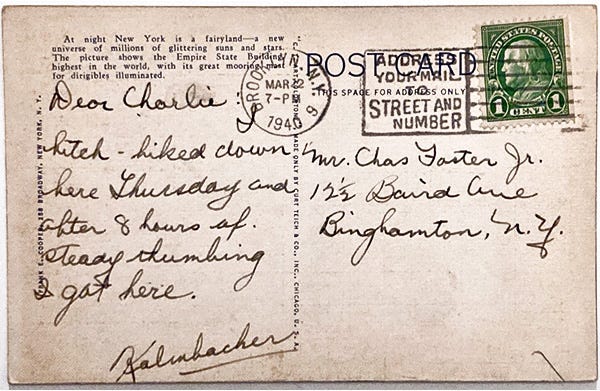 At night New York is a fairyland—a new
universe of millions of glittering suns and stars.
The picture shows the Empire State Building,
highest in the world, with its great mooring mast
for dirigibles illuminated.
POST CARD
THIS SPACE FOR ADDRESS ONLY
BROOKLYN, N.Y.
MAR 22
7-PM
1940
9
ADDRESS
YOUR MAIL
TO
STREET AND
NUMBER
UNITED STATES POSTAGE
1 CENT 1
Dear Charlie: I
hitch-hiked down
here Thursday and
after 8 hours of
steady thumbing
I got here.
Kalmbacher
Mr. Chas Foster Jr.
12½ Baird Ave
Binghamton, N.Y.
COOPER, 258 BROADWAY, NEW YORK, N. Y.
MADE ONLY BY CURT TEICH & CO., INC., CHICAGO, U. S. A.